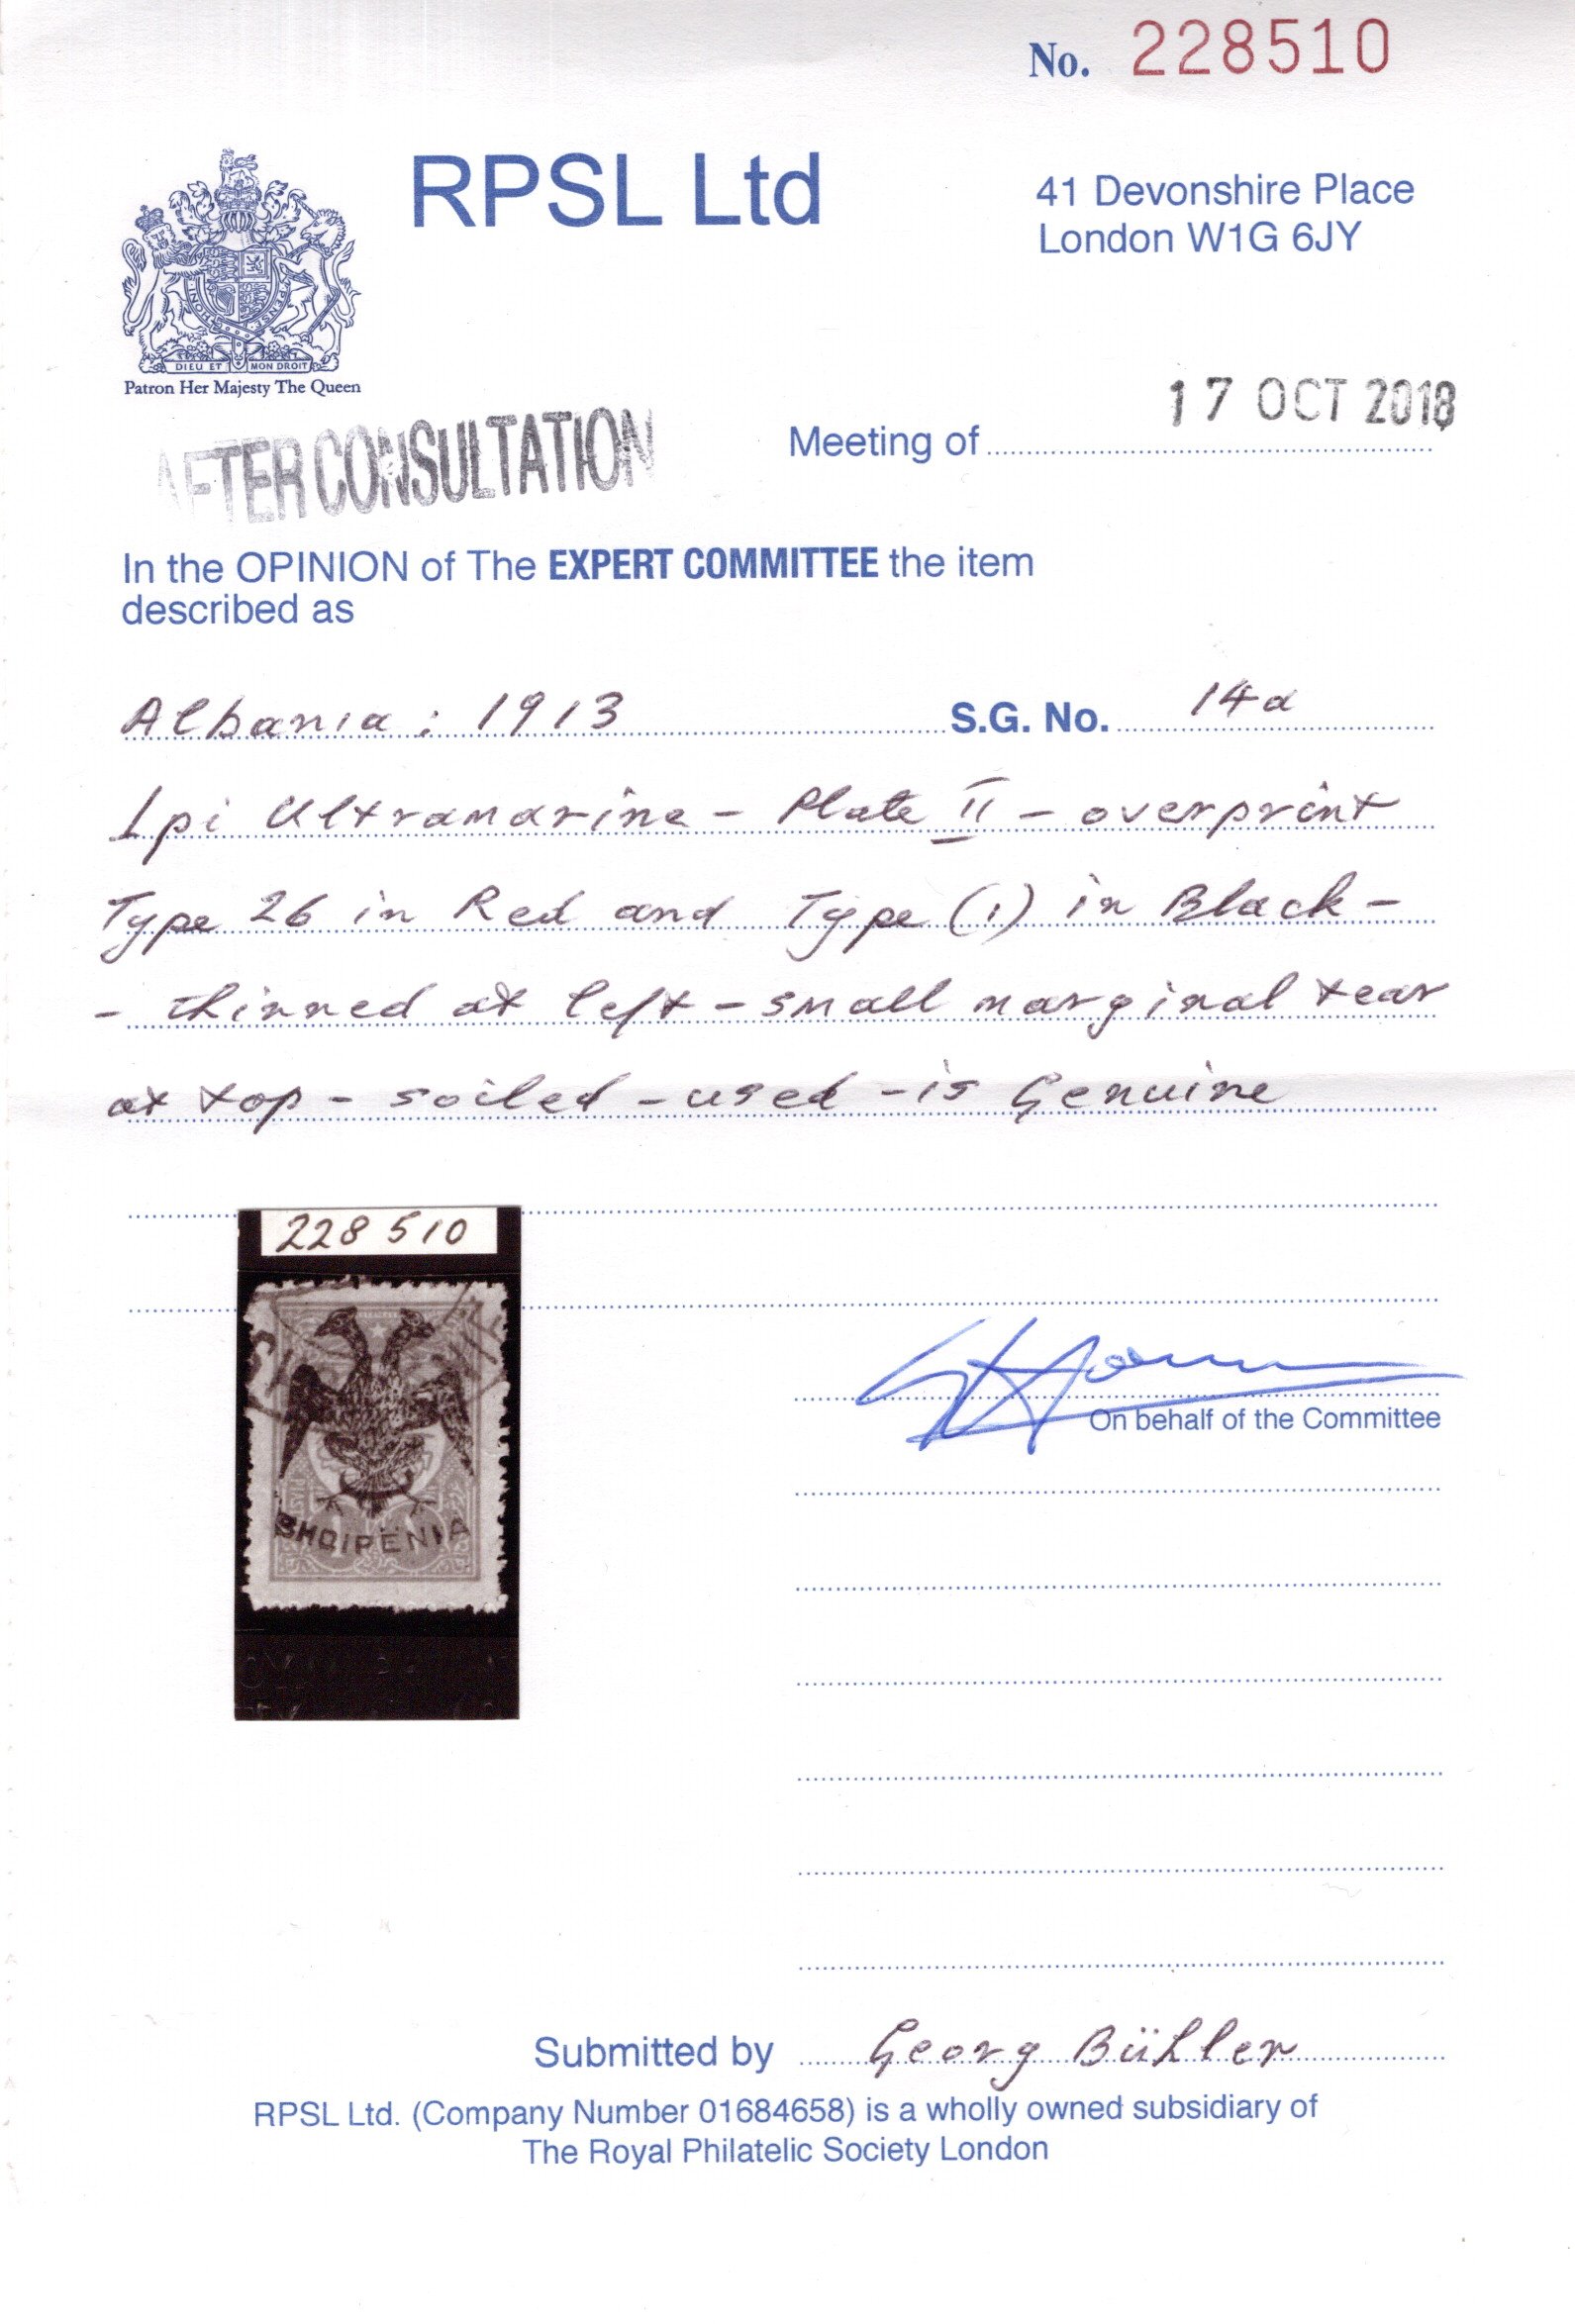 No. 228510
RPSL Ltd
41 Devonshire Place
London W1G 6JY
DIEU ET MON DROIT
Patron Her Majesty The Queen
AFTER CONSULTATION
Meeting of 17 OCT 2018
In the OPINION of The EXPERT COMMITTEE the item
described as
Albania: 1913 S.G. No. 14a
1pi Ultramarine - Plate II - overprint
Type 26 in Red and Type (1) in Black -
- thinned at left - small marginal tear
at top - soiled - used - is Genuine
228510
SHQIPËNIA
On behalf of the Committee
Submitted by Georg Bühler
RPSL Ltd. (Company Number 01684658) is a wholly owned subsidiary of
The Royal Philatelic Society London